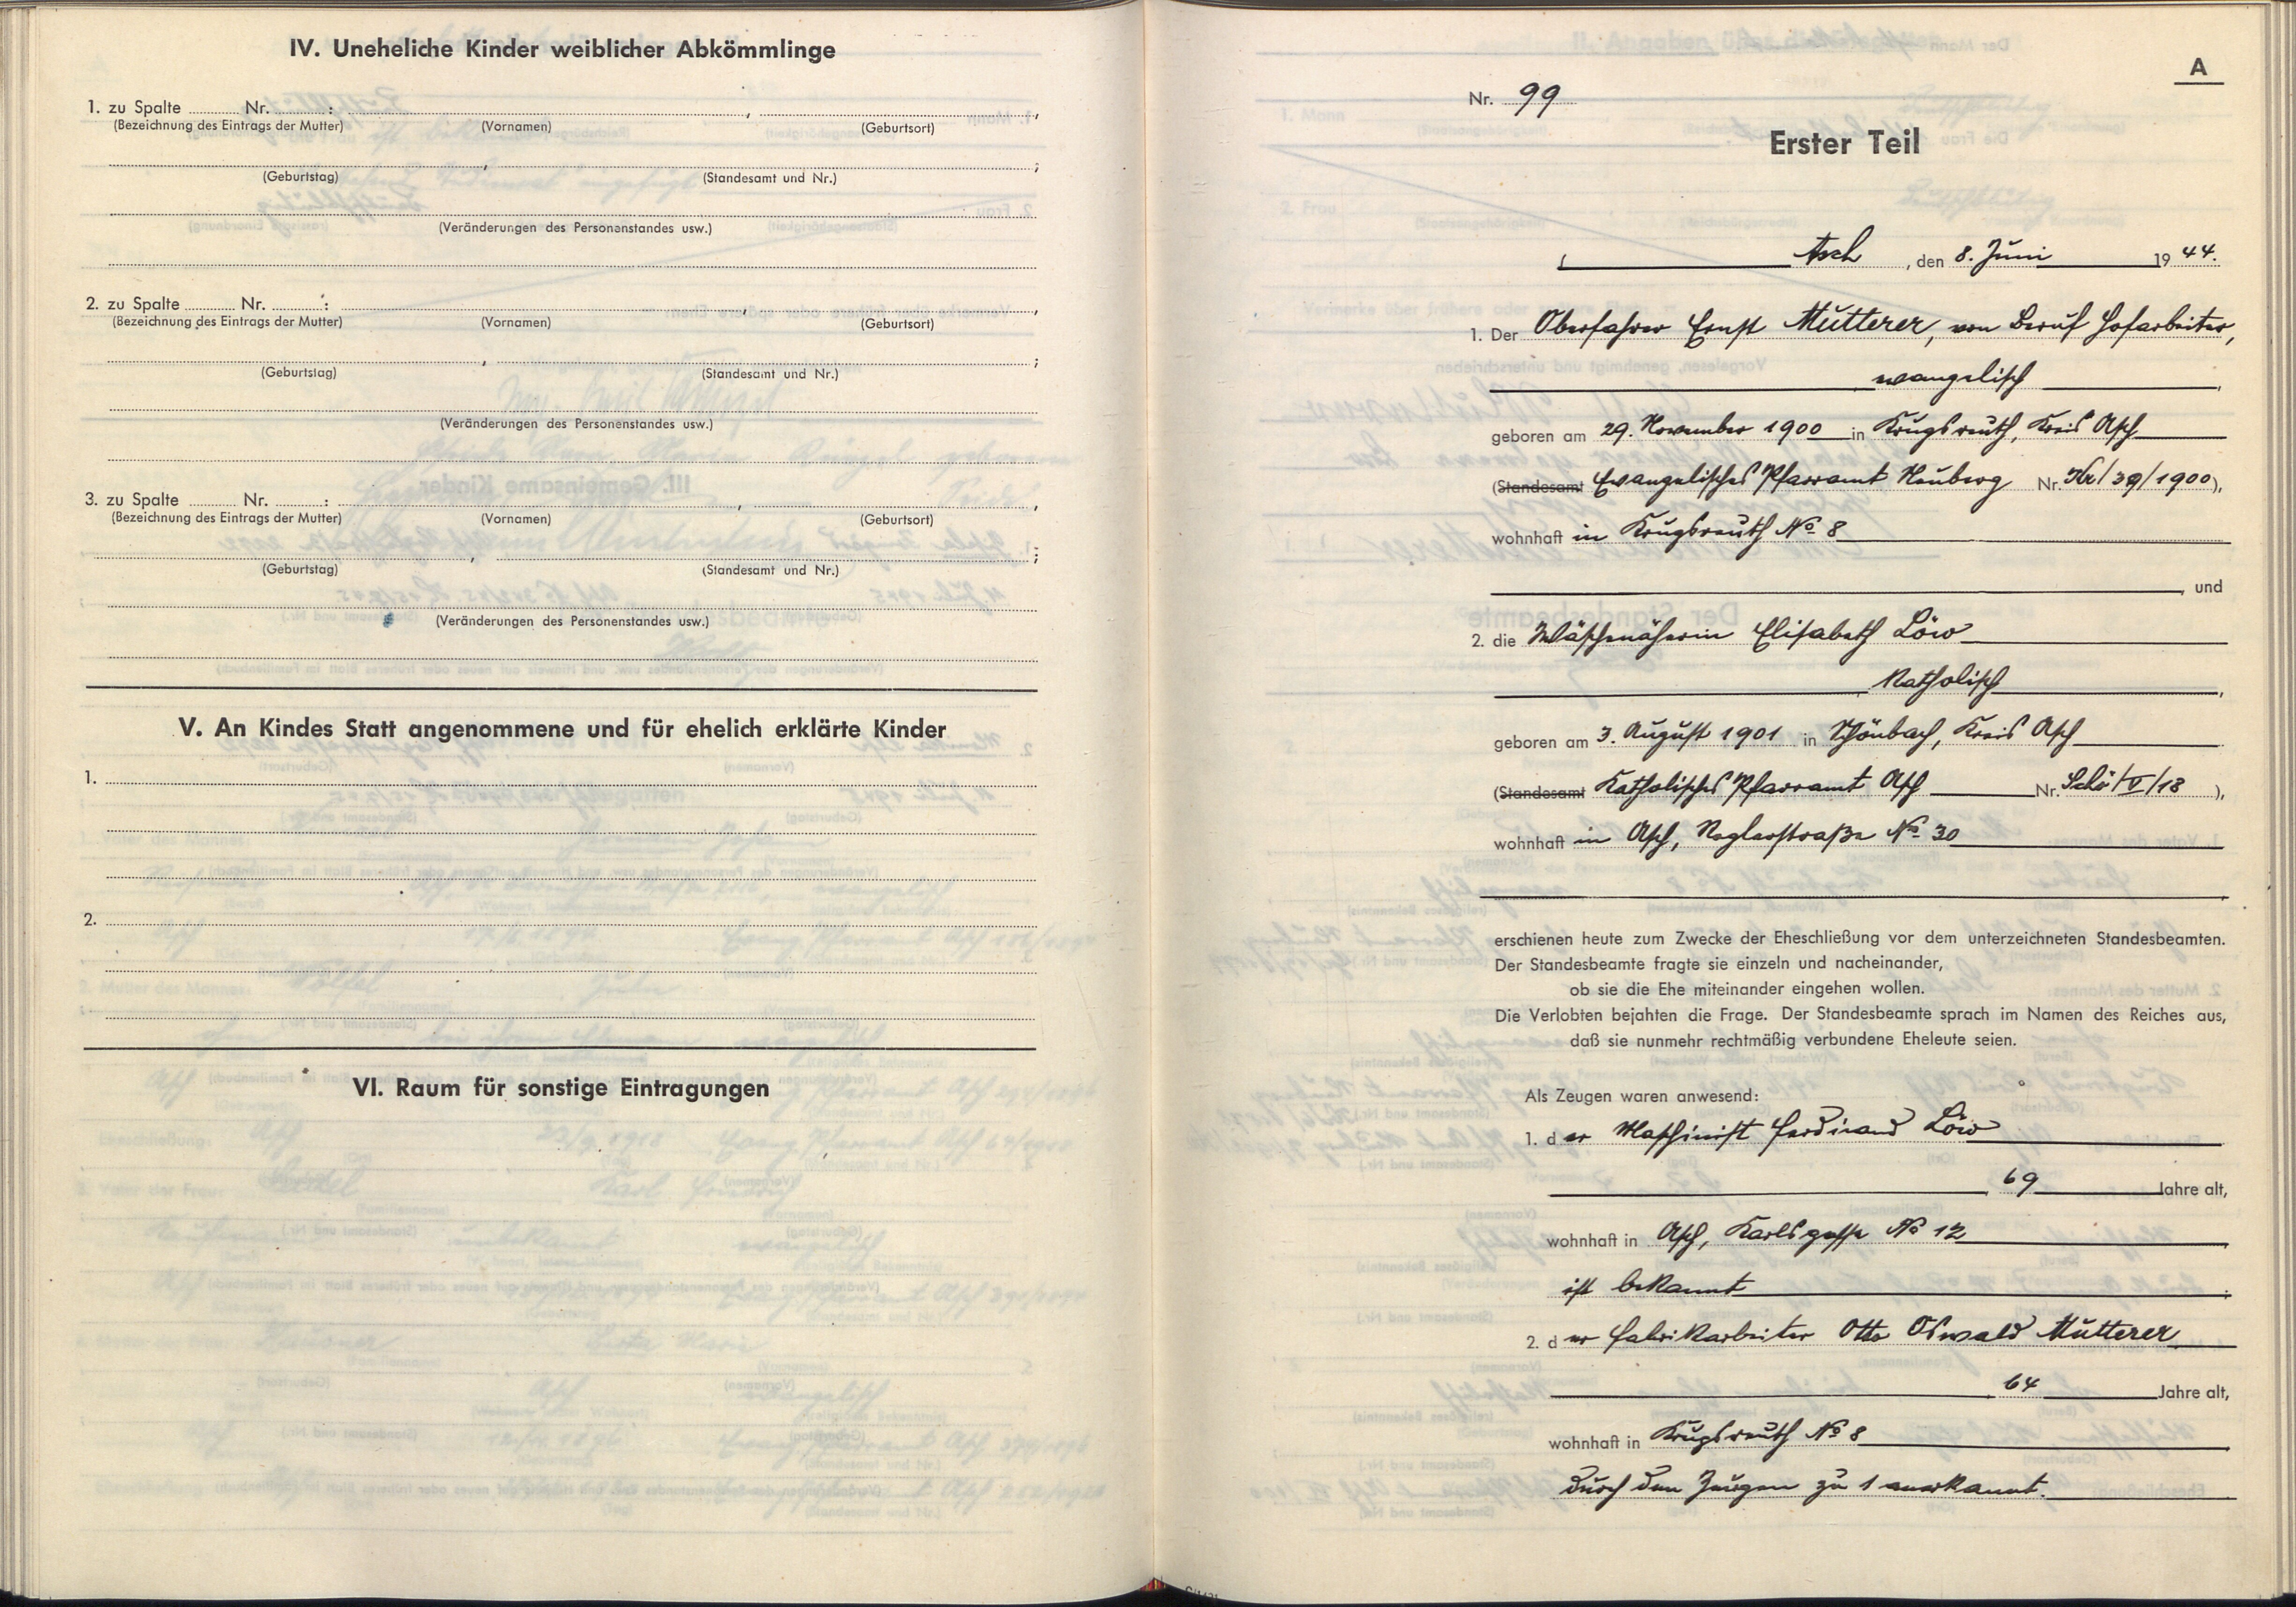 IV. Uneheliche Kinder weiblicher Abkömmlinge
1. zu Spalte ........ Nr. ........ :
(Bezeichnung des Eintrags der Mutter) (Vornamen) (Geburtsort)
(Geburtstag) (Standesamt und Nr.)
(Veränderungen des Personenstandes usw.)
2. zu Spalte ........ Nr. ........ :
(Bezeichnung des Eintrags der Mutter) (Vornamen) (Geburtsort)
(Geburtstag) (Standesamt und Nr.)
(Veränderungen des Personenstandes usw.)
3. zu Spalte ........ Nr. ........ :
(Bezeichnung des Eintrags der Mutter) (Vornamen) (Geburtsort)
(Geburtstag) (Standesamt und Nr.)
(Veränderungen des Personenstandes usw.)
V. An Kindes Statt angenommene und für ehelich erklärte Kinder
1.
2.
VI. Raum für sonstige Eintragungen
A
Nr. 99
Erster Teil
Asch, den 8. Juni 1944.
1. Der Oberfahrer Ernst Mutterer, von Beruf Hofarbeiter,
evangelisch,
geboren am 29. November 1900 in Krugsreuth, Kreis Asch
(Standesamt Evangelisches Pfarramt Neuberg Nr. Kr/39/1900),
wohnhaft in Krugsreuth No 8
, und
2. die Wäschenäherin Elisabeth Löw
katholisch,
geboren am 3. August 1901 in Schönbach, Kreis Asch
(Standesamt Katholisches Pfarramt Asch Nr. Schö/V/18),
wohnhaft in Asch, Neglerstraße No 30
erschienen heute zum Zwecke der Eheschließung vor dem unterzeichneten Standesbeamten.
Der Standesbeamte fragte sie einzeln und nacheinander,
ob sie die Ehe miteinander eingehen wollen.
Die Verlobten bejahten die Frage. Der Standesbeamte sprach im Namen des Reiches aus,
daß sie nunmehr rechtmäßig verbundene Eheleute seien.
Als Zeugen waren anwesend:
1. der Maschinist Ferdinand Löw
69 Jahre alt,
wohnhaft in Asch, Karlsgasse No 12
ist bekannt;
2. der Fabrikarbeiter Otto Oswald Mutterer
64 Jahre alt,
wohnhaft in Krugsreuth No 8
durch den Zeugen zu 1 anerkannt.